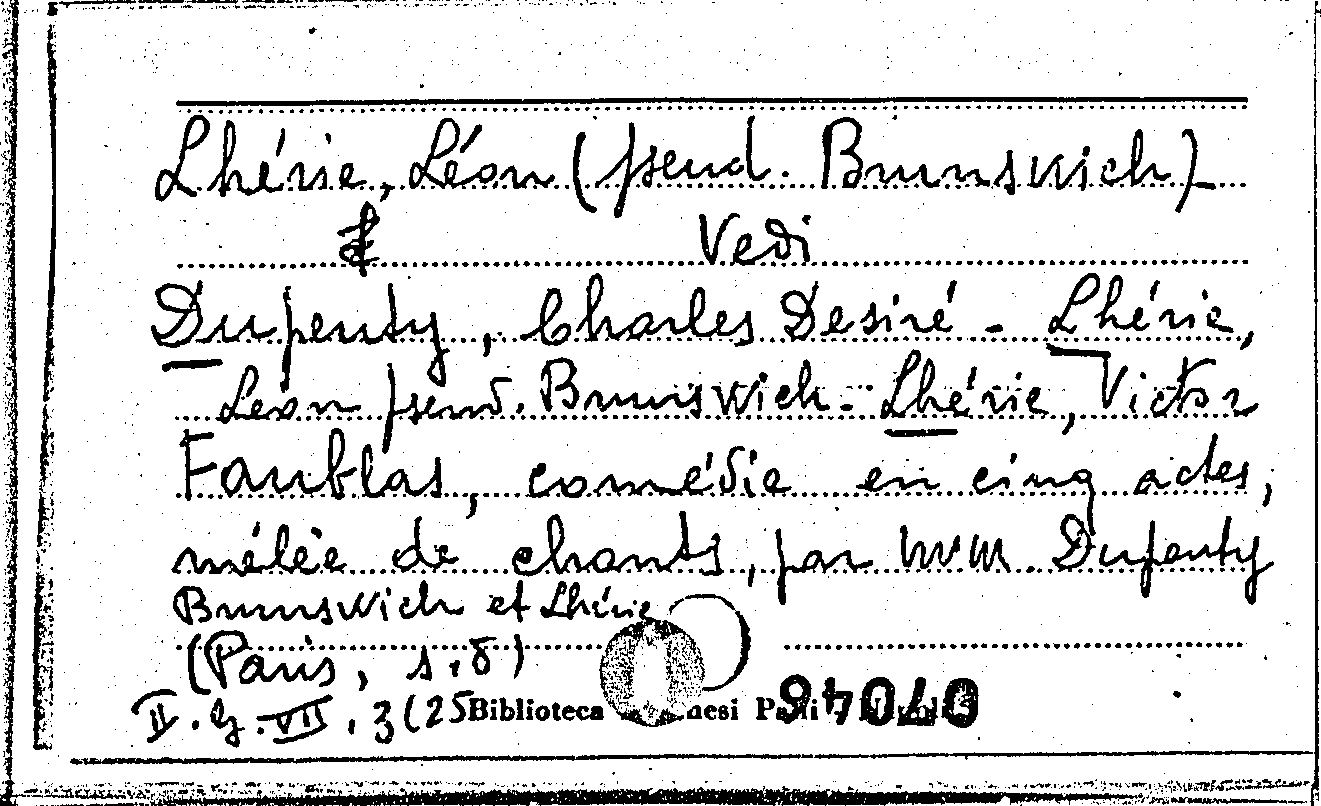 Lhérie, Léon (pseud. Brunswich)-
Vedi
Dupeuty, Charles Desiré - Lhérie,
Léon pseud. Brunswich - Lhérie, Victor
Faublas, comédie en cinq actes,
mélèe de chants, par MM. Dupeuty
Brunswich et Lhérie
(Paris, s.d)
II. G. VII. 3 (25
Biblioteca